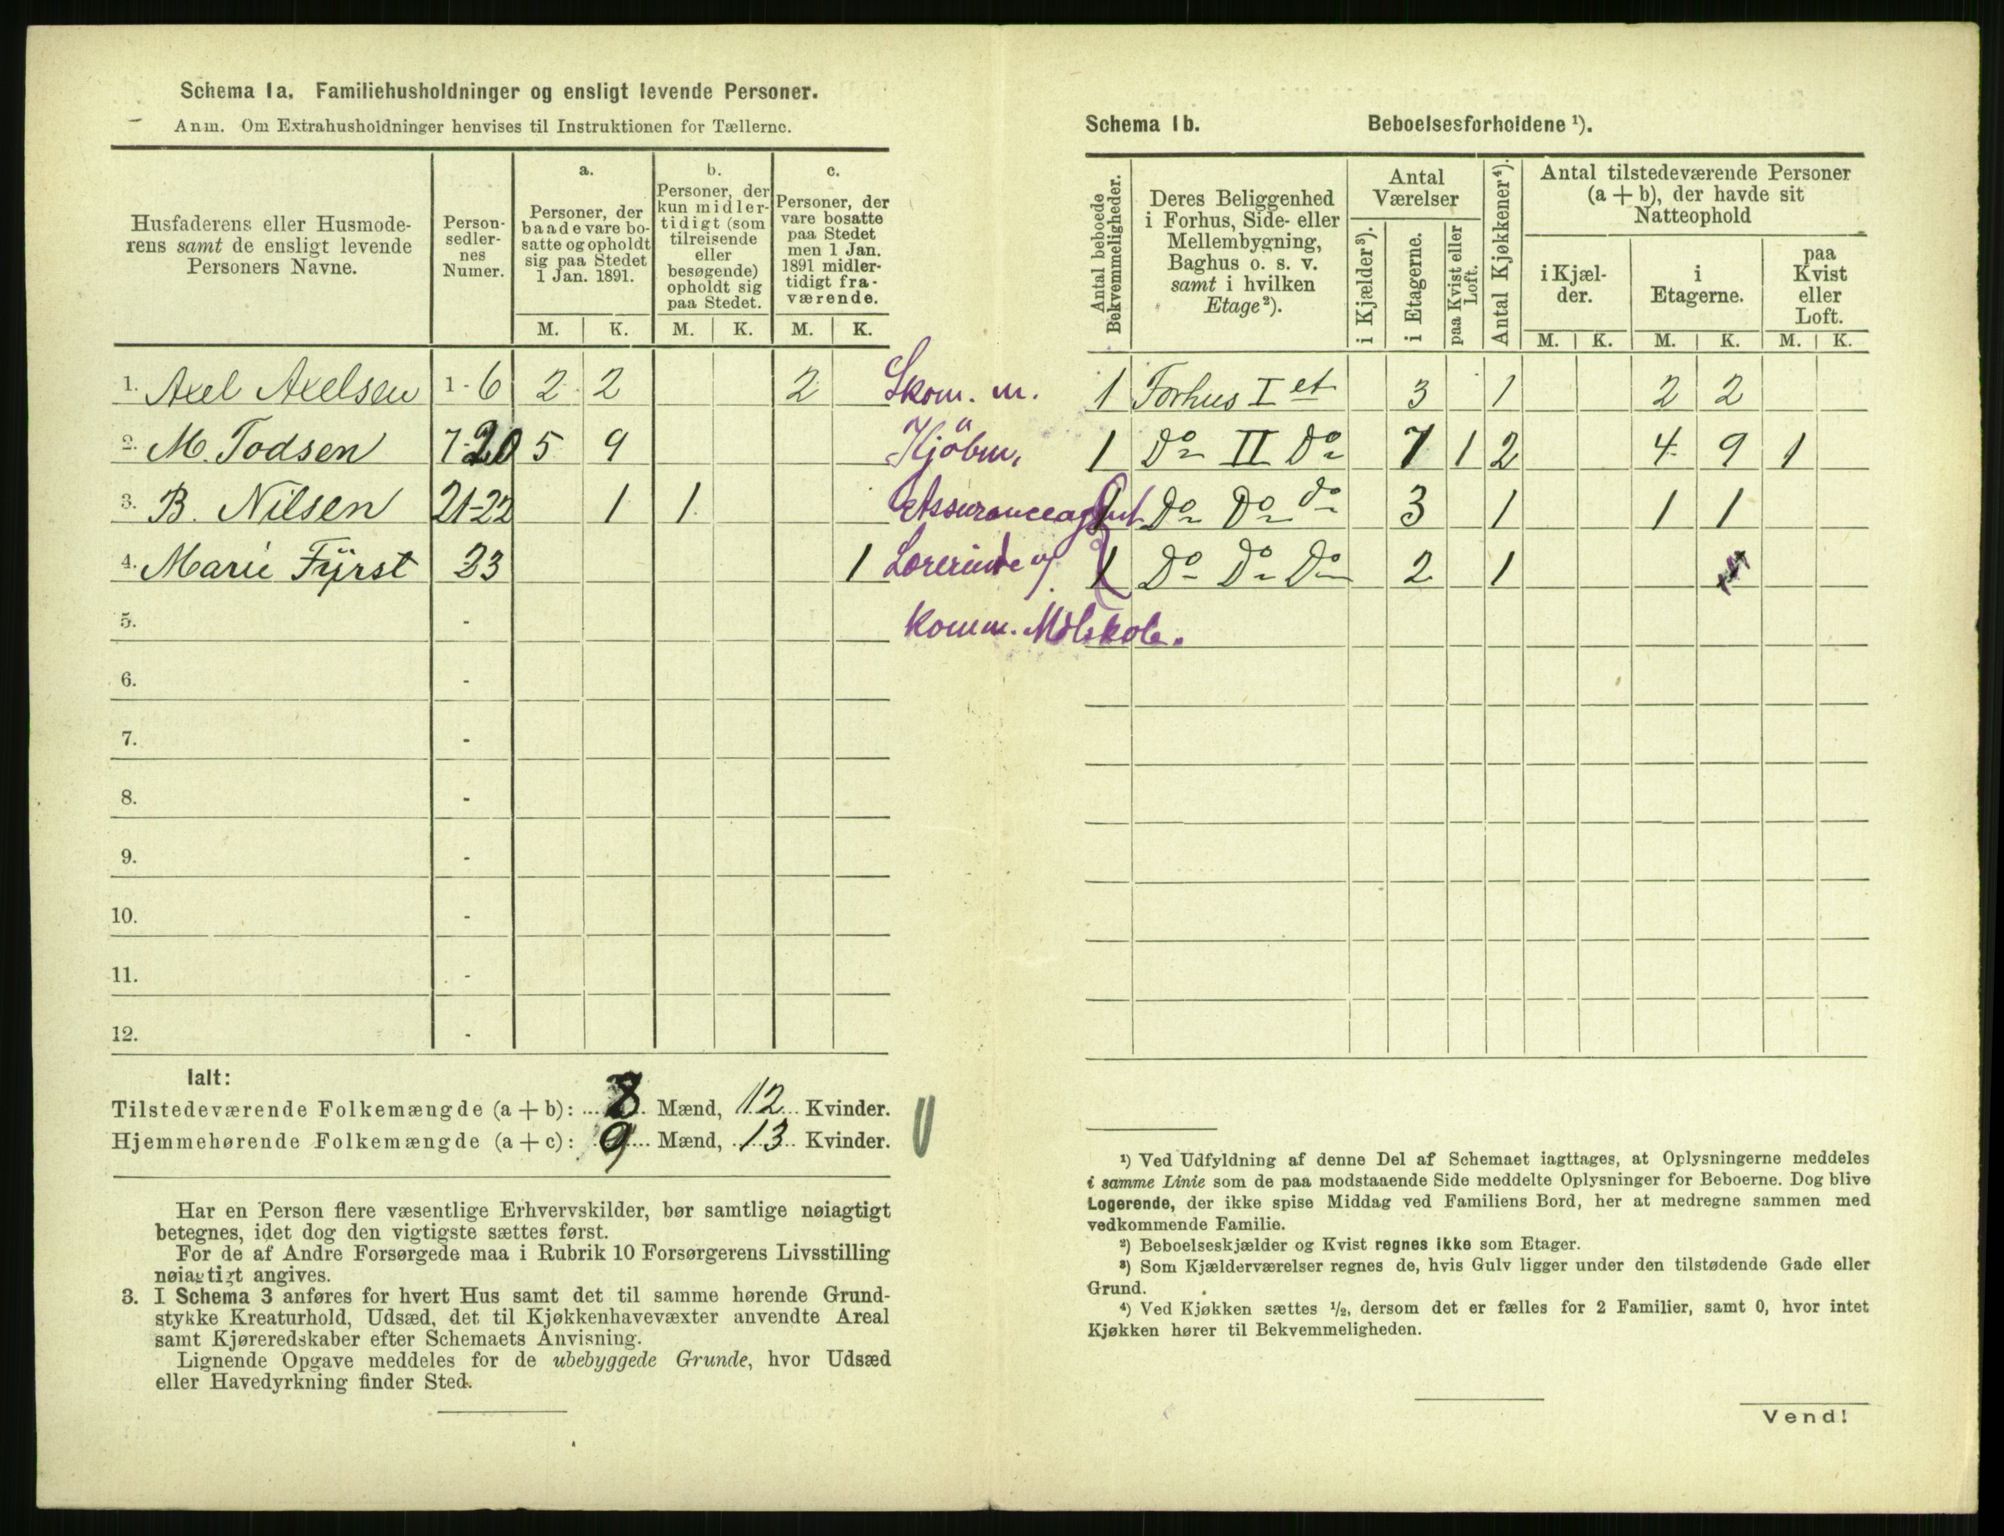 Schema 1a. Familiehusholdninger og ensligt levende Personer.
Anm. Om Extrahusholdninger henvises til Instruktionen for Tællerne.
Husfaderens eller Husmode-
rens samt de ensligt levende
Personers Navne.
Person-
sedler-
nes
Numer.
a.
Personer, der
baade vare bo-
satte og opholdt
sig paa Stedet
1 Jan. 1891.
b.
Personer, der
kun midler-
tidigt (som
tilreisende
eller
besøgende)
opholdt sig
paa Stedet.
c.
Personer, der
vare bosatte
paa Stedet
men 1 Jan.
1891 midler-
tidigt fra-
værende.
M. K. M. K. M. K.
1. Axel Axelsen 1-6 2 2 2 Skom. m.
2. M. Todsen 7-20 5 9 Kjöbm.
3. B. Nilsen 21-22 1 1 Assuranceagent
4. Marie Fÿrst 23 1 Lærerinde v/
5. - komm. Mdlskole.
6. -
7. -
8. -
9. -
10. -
11. -
12. -
Ialt:
Tilstedeværende Folkemængde (a + b): 8 Mænd, 12 Kvinder.
Hjemmehørende Folkemængde (a + c): 9 Mænd, 13 Kvinder.
Har en Person flere væsentlige Erhvervskilder, bør samtlige nøiagtigt
betegnes, idet dog den vigtigste sættes først.
For de af Andre Forsørgede maa i Rubrik 10 Forsørgerens Livsstilling
nøiagtigt angives.
3. I Schema 3 anføres for hvert Hus samt det til samme hørende Grund-
stykke Kreaturhold, Udsæd, det til Kjøkkenhavevæxter anvendte Areal
samt Kjøreredskaber efter Schemaets Anvisning.
Lignende Opgave meddeles for de ubebyggede Grunde, hvor Udsæd
eller Havedyrkning finder Sted.
Schema 1b. Beboelsesforholdene ¹).
Antal beboede
Bekvemmeligheder.
Deres Beliggenhed
i Forhus, Side- eller
Mellembygning,
Baghus o. s. v.
samt i hvilken
Etage²).
Antal
Værelser
i Kjælder³).
i Etagerne.
paa Kvist eller
Loft.
Antal Kjøkkener⁴).
Antal tilstedeværende Personer
(a + b), der havde sit
Natteophold
i Kjæl-
der.
i
Etagerne.
paa
Kvist
eller
Loft.
M. K. M. K. M. K.
1 Forhus I et 3 1 2 2
1 Do II Do 7 1 2 4 9 1
1 Do Do do 3 1 1 1
1 Do Do Do 2 1
¹) Ved Udfyldning af denne Del af Schemaet iagttages, at Oplysningerne meddeles
i samme Linie som de paa modstaaende Side meddelte Oplysninger for Beboerne. Dog blive
Logerende, der ikke spise Middag ved Familiens Bord, her at medregne sammen med
vedkommende Familie.
²) Beboelseskjælder og Kvist regnes ikke som Etager.
³) Som Kjælderværelser regnes de, hvis Gulv ligger under den tilstødende Gade eller
Grund.
⁴) Ved Kjøkken sættes ½, dersom det er fælles for 2 Familier, samt 0, hvor intet
Kjøkken hører til Bekvemmeligheden.
Vend!